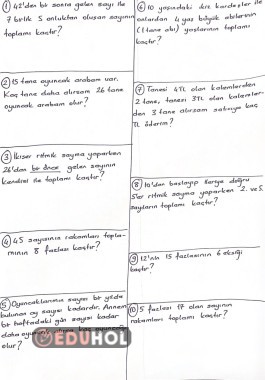 ① 42'den bir sonra gelen sayı ile
7 birlik 5 onluktan oluşan sayının
toplamı kaçtır?
② 15 tane oyuncak arabam var.
Kaç tane daha alırsam 26 tane
oyuncak arabam olur?
③ İkişer ritmik sayma yaparken
26'dan bir önce gelen sayının
kendisi ile toplamı kaçtır?
④ 45 sayısının rakamları topla-
mının 8 fazlası kaçtır?
⑤ Oyuncaklarımın sayısı bir yılda
bulunan ay sayısı kadardır. Annem
bir haftadaki gün sayısı kadar
daha oyuncak kaç
olur?
EDUHOL
⑥ 10 yaşındaki ikiz kardeşler ile
onlardan 4 yaş büyük abilerinin
(1 tane abi) yaşlarının toplamı
kaçtır?
⑦ Tanesi 4TL olan kalemlerden
2 tane, tanesi 3TL olan kalemler-
den 3 tane alırsam satıcıya kaç
TL öderim?
⑧ 14'den başlayıp ileriye doğru
5'er ritmik sayma yaparken 2. ve 5.
sayıların toplamı kaçtır?
⑨ 12'nin 15 fazlasının 6 eksiği
kaçtır?
⑩ 5 fazlası 17 olan sayının
rakamları toplamı kaçtır?